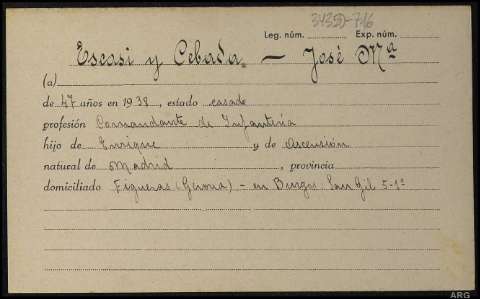 34350-716
Leg. núm. Exp. núm.
Escasi y Cebada. — José Mª
(a)
de 47 años en 1938, estado casado
profesión Comandante de Infantería
hijo de Enrique y de Ascensión
natural de Madrid, provincia
domiciliado Figueras (Gerona) - en Burgos San Gil 5-1º
ARG